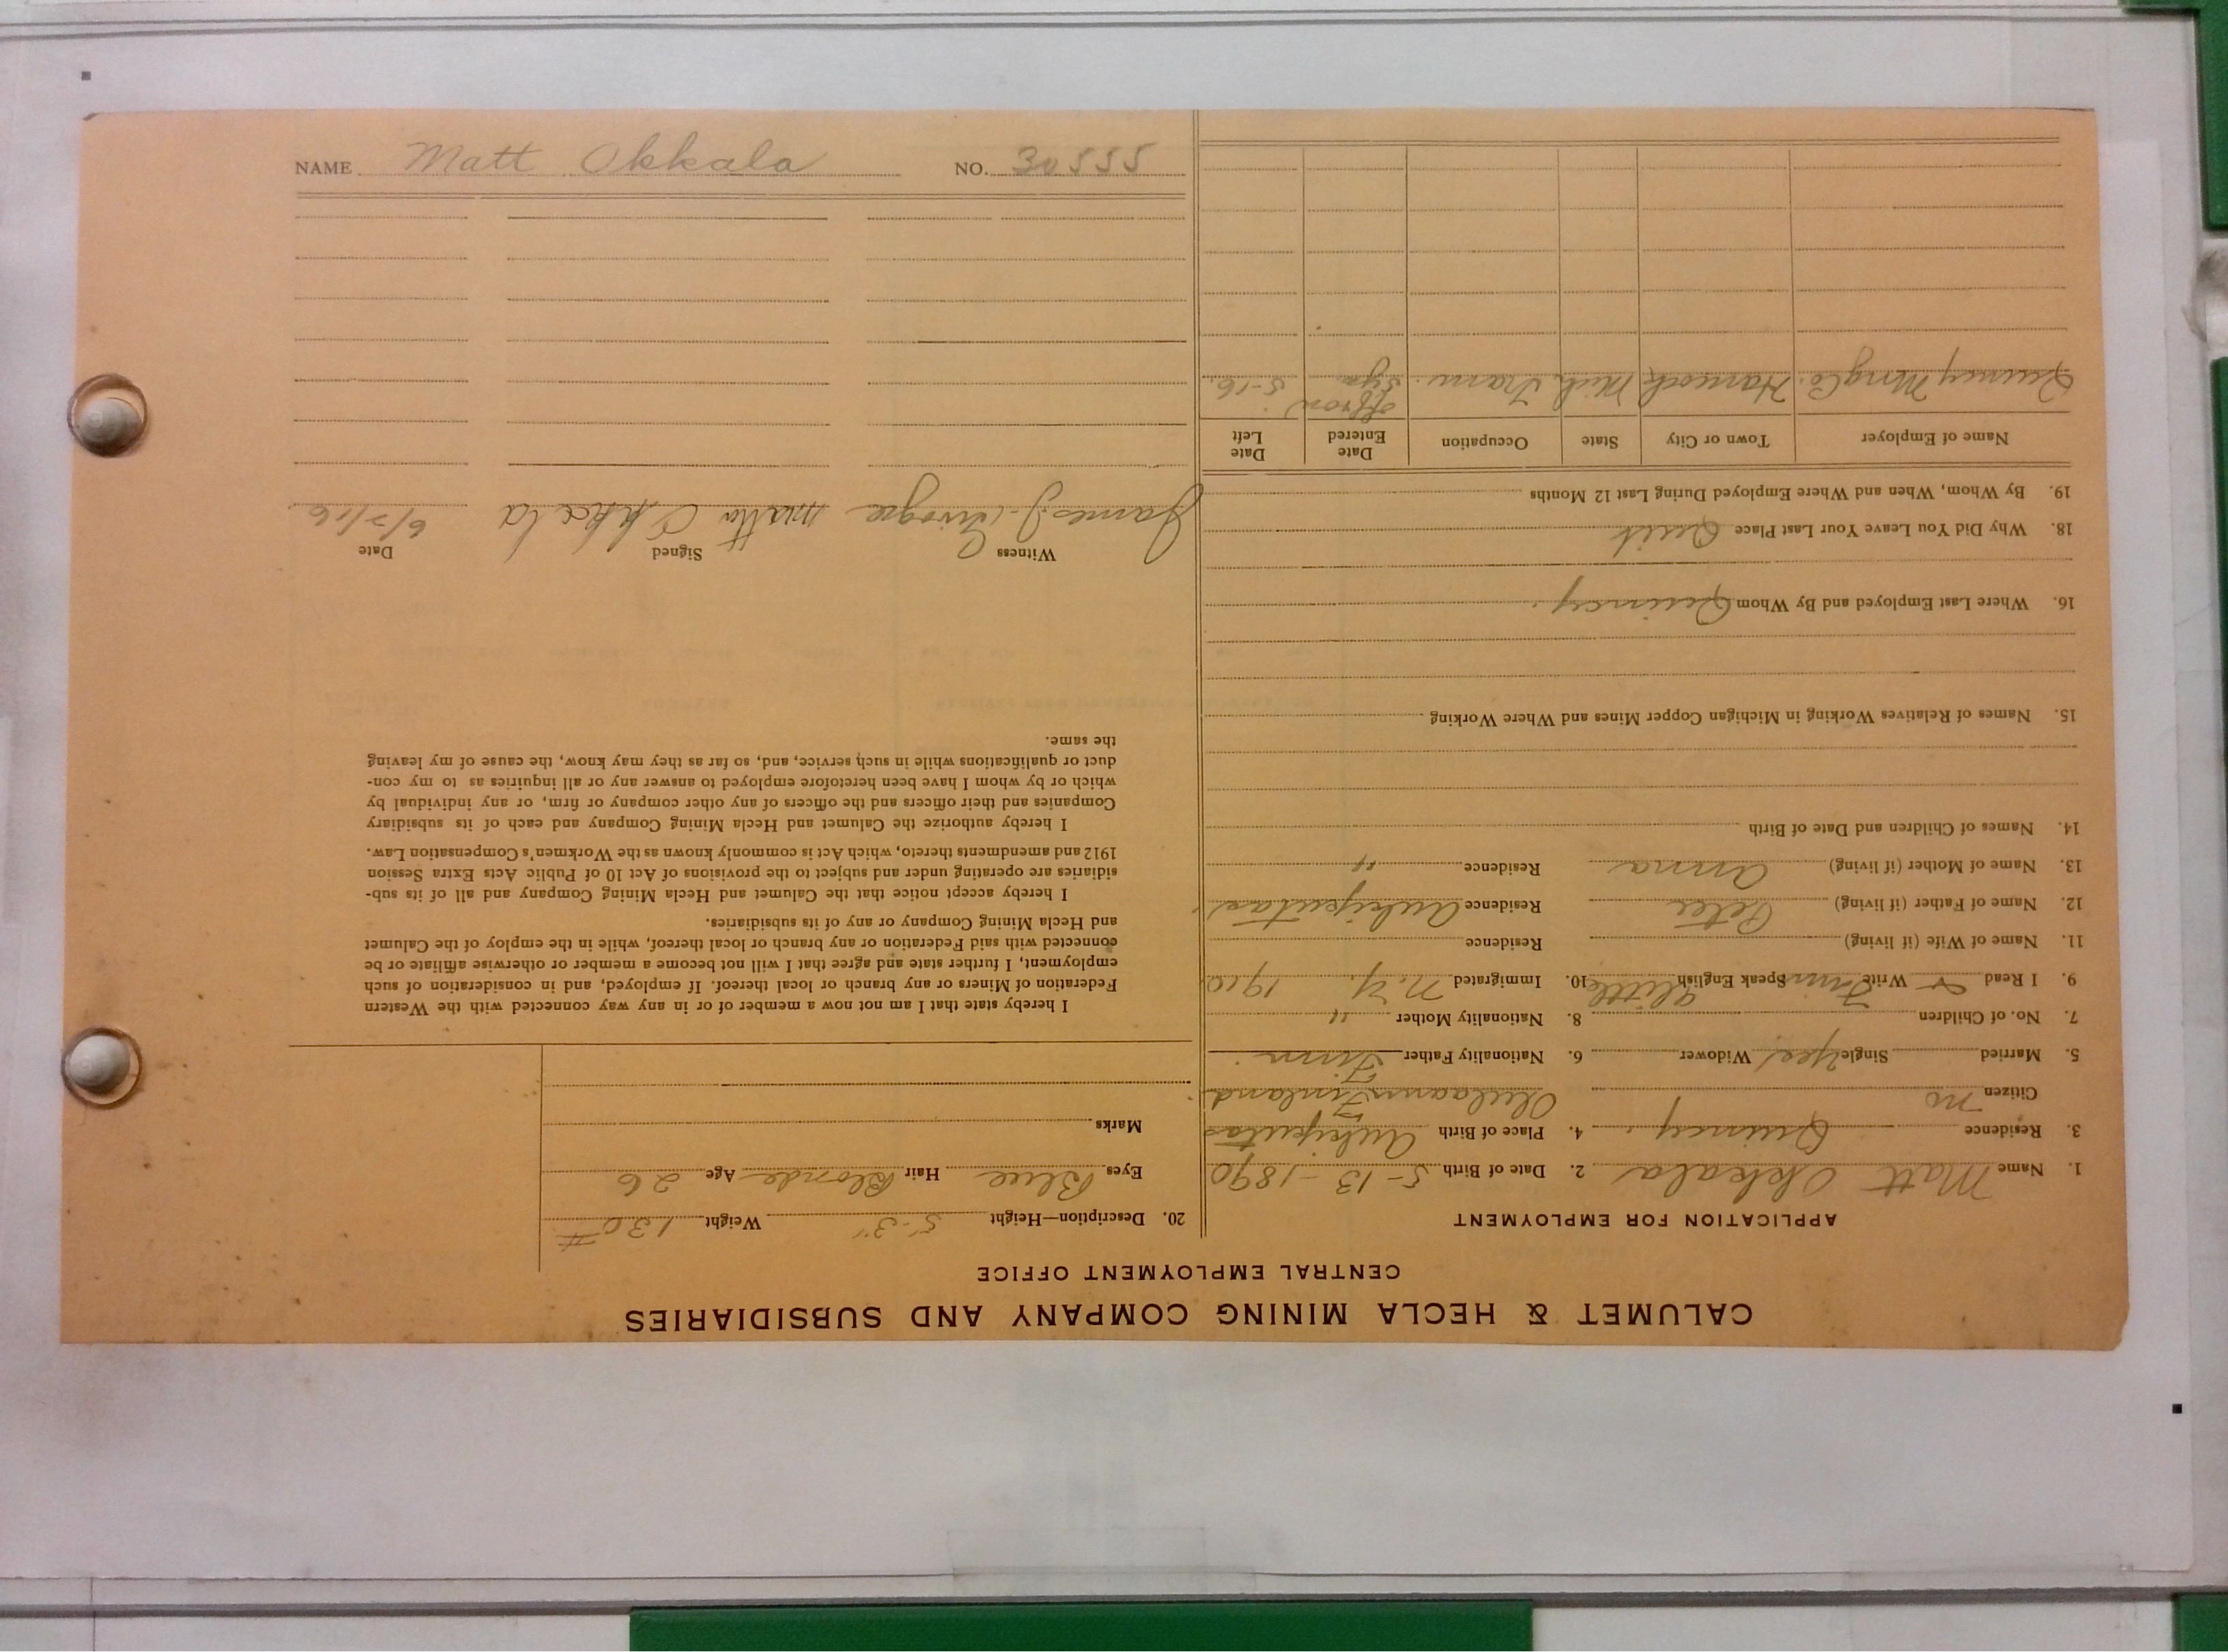 NAME Matt Okkala NO. 30555
CALUMET & HECLA MINING COMPANY AND SUBSIDIARIES
CENTRAL EMPLOYMENT OFFICE
APPLICATION FOR EMPLOYMENT
1. Name Matt Okkala 2. Date of Birth 5-13-1890
3. Residence Quincy. 4. Place of Birth
Citizen no Finland
5. Married Single yes Widower 6. Nationality Father Finn
7. No. of Children 8. Nationality Mother "
9. I Read & Write Finn Speak English little 10. Immigrated N.Y. 1910
11. Name of Wife (if living) Residence
12. Name of Father (if living) Peter Residence
13. Name of Mother (if living) Anna Residence "
14. Names of Children and Date of Birth
15. Names of Relatives Working in Michigan Copper Mines and Where Working
16. Where Last Employed and By Whom Quincy.
18. Why Did You Leave Your Last Place Quit
19. By Whom, When and Where Employed During Last 12 Months
Name of Employer Town or City State Occupation Date Entered Date Left
Quincy Mng Co. Hancock Mich Tram. 5-16.
20. Description—Height 5-3" Weight 130#
Eyes Blue Hair Blonde Age 26
Marks
I hereby state that I am not now a member of or in any way connected with the Western
Federation of Miners or any branch or local thereof. If employed, and in consideration of such
employment, I further state and agree that I will not become a member or otherwise affiliate or be
connected with said Federation or any branch or local thereof, while in the employ of the Calumet
and Hecla Mining Company or any of its subsidiaries.
I hereby accept notice that the Calumet and Hecla Mining Company and all of its sub-
sidiaries are operating under and subject to the provisions of Act 10 of Public Acts Extra Session
1912 and amendments thereto, which Act is commonly known as the Workmen's Compensation Law.
I hereby authorize the Calumet and Hecla Mining Company and each of its subsidiary
Companies and their officers and the officers of any other company or firm, or any individual by
which or by whom I have been heretofore employed to answer any or all inquiries as to my con-
duct or qualifications while in such service, and, so far as they may know, the cause of my leaving
the same.
Witness Signed Date
James J.